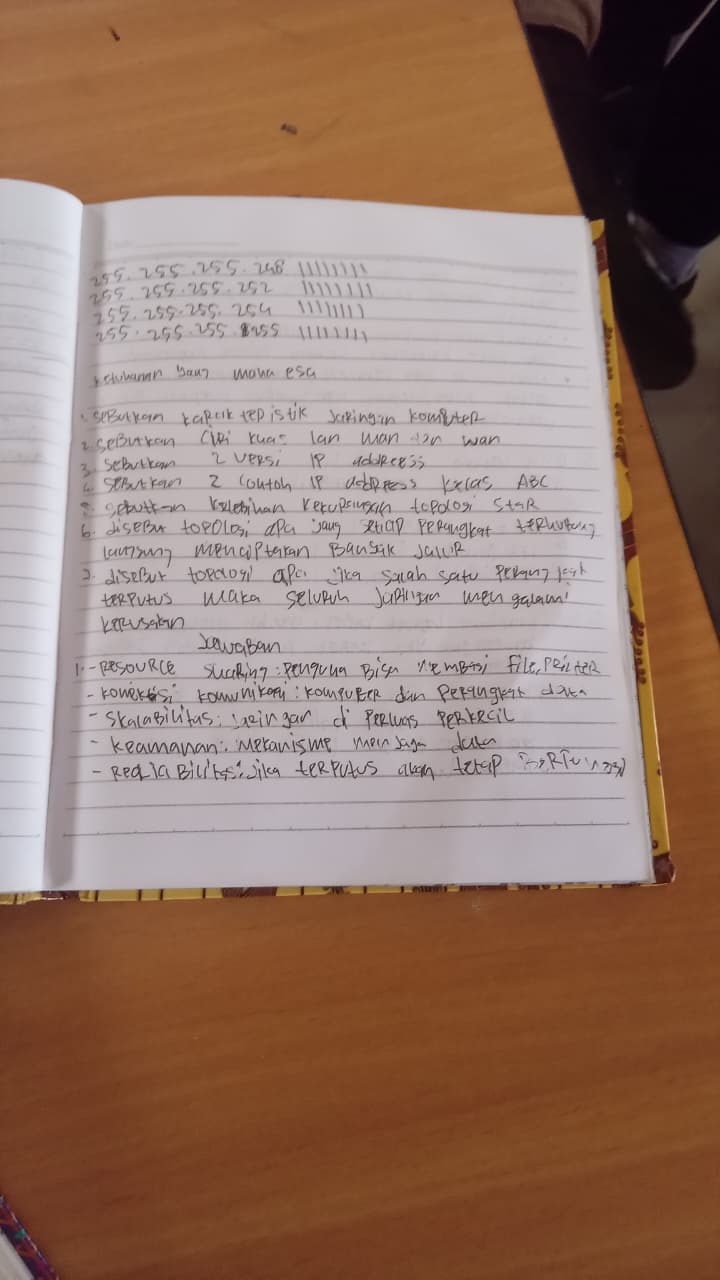 255.255.255.248 11111111
255.255.255.252 11111111
255.255.255.254 11111111
255.255.255.255 11111111
ketuhanan yang maha esa
1. seButkan karakteristik Jaringan komputer
2. seButkan ciri kuas lan man dan wan
3. seButkan 2 versi IP address
4. seButkan 2 contoh IP address kelas ABC
5. seButkan kelebihan kekurangan topologi staR
6. diseBut topologi apa yang setiap perangkat terhubung
langsung menciptakan Banyak Jalur
7. diseBut topologi apa jika salah satu perangkat
terputus maka seluruh Jaringan mengalami
kerusakan
Jawaban
1. - Resource sharing : penguna Bisa memBagi file, printer
- koneksi komunikasi : komputer dan perangkat
- skalaBilitas : Jaringan di perluas perkecil
- keamanan : mekanisme menjaga data
- RealiaBilitas : jika terputus akan tetap